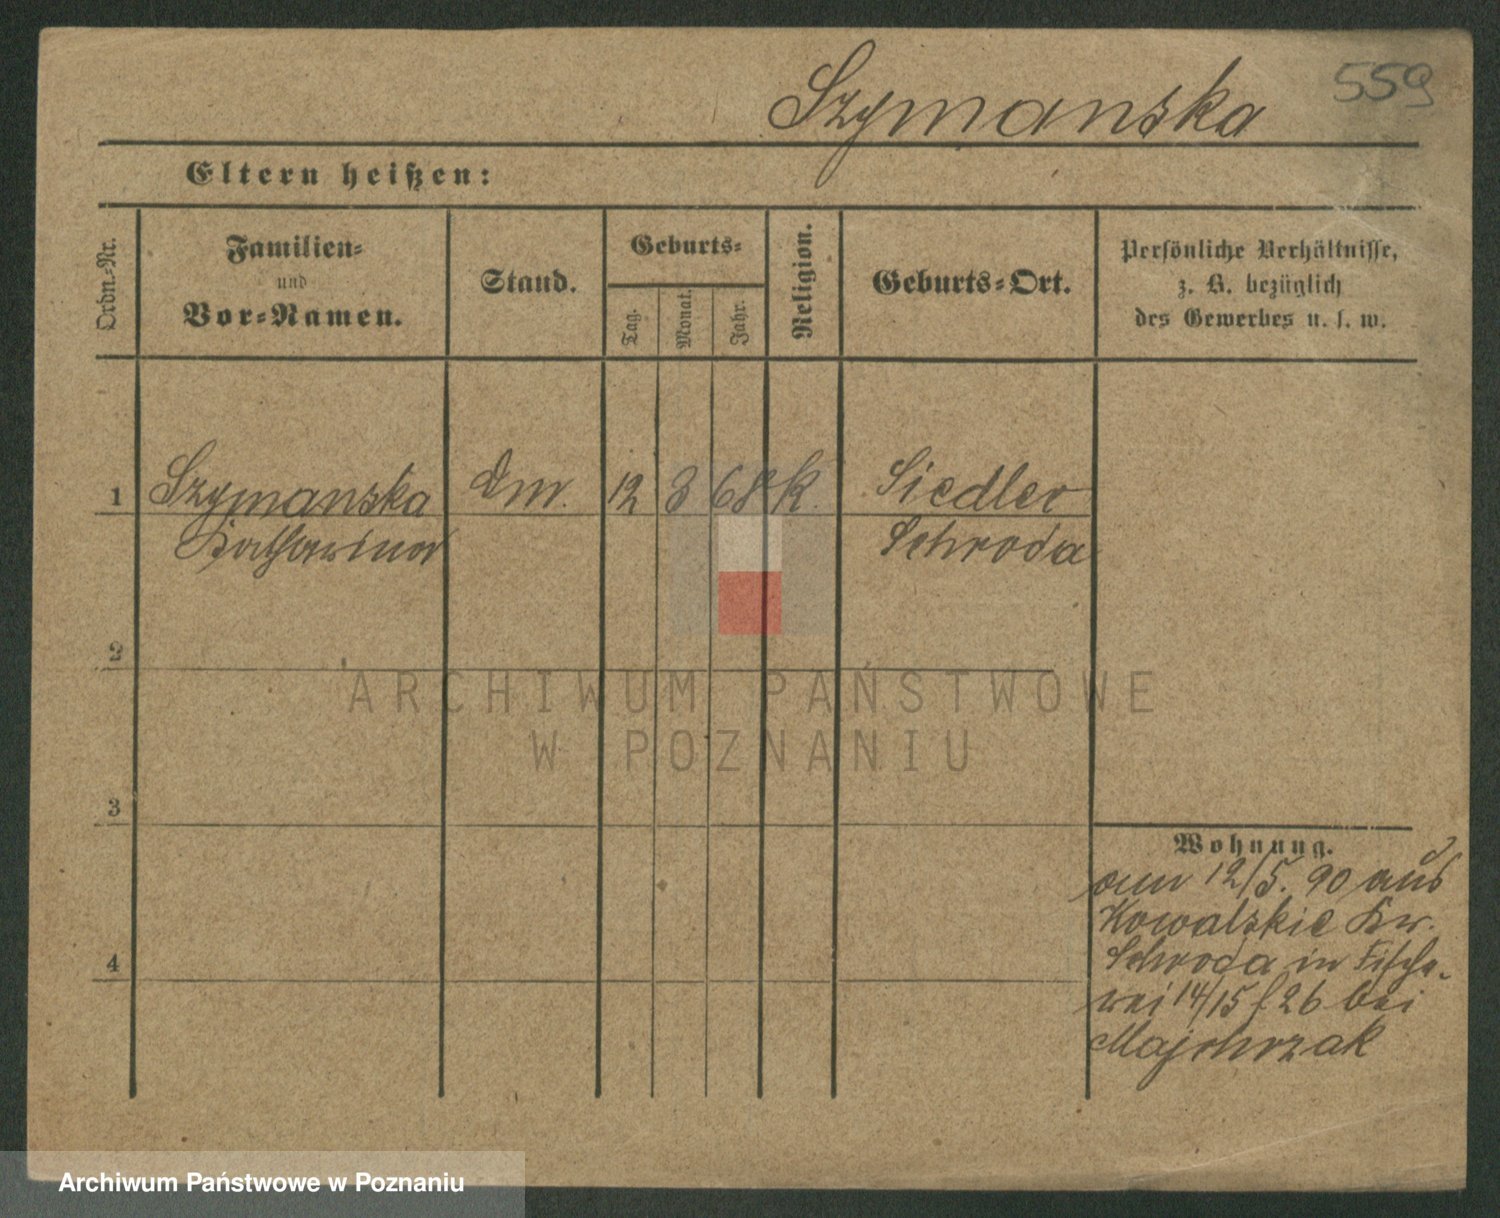 Szymanska 559
Eltern heißen:
Ordn.-Nr.
Familien-
und
Vor-Namen.
Stand.
Geburts-
Tag.
Monat.
Jahr.
Religion.
Geburts-Ort.
Persönliche Verhältnisse,
z. B. bezüglich
des Gewerbes u. s. w.
1 Szymanska Dm. 12 3 68 K. Siedlec
Katharina Schroda
2
3
4
Wohnung.
am 12/5. 90 aus
Kowalskie Kr.
Schroda in Fische-
rei 14/15 f 26 bei
Majchrzak
ARCHIWUM PAŃSTWOWE
W POZNANIU
Archiwum Państwowe w Poznaniu